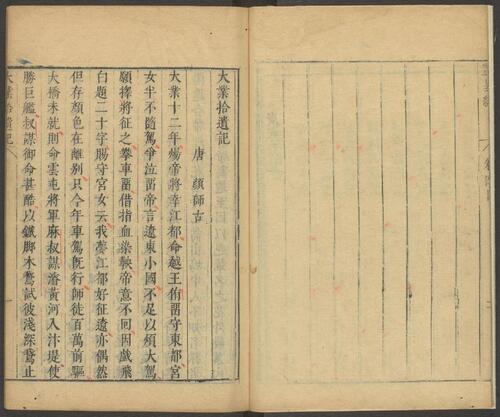 大業拾遺記
唐 顏師古
大業十二年煬帝將幸江都命越王侑留守東都宮
女半不隨駕爭泣留帝言遼東小國不足以煩大駕
願擇將征之攀車留借指血染鞅帝意不回因戲飛
白題二十字賜守宮女云我夢江都好征遼亦偶然
但存顏色在離别只今年車駕旣行師徒百萬前驅
大橋未就則命雲屯將軍麻叔謀濬黃河入汴堤使
勝巨艦叔謀御命甚酷以鐵脚木鵞試彼淺深鵞止
大業拾遺記